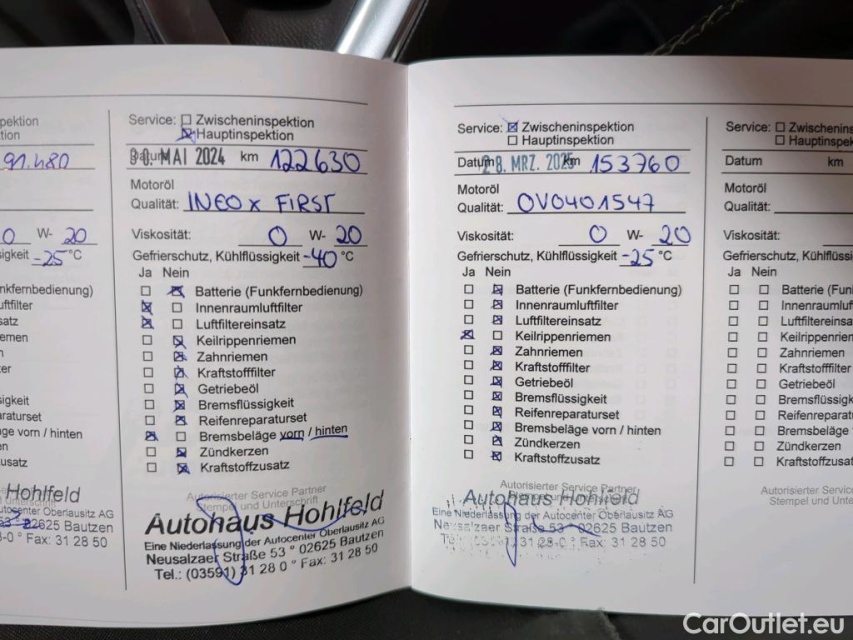 pektion
tion
91.480
0 W- 20
sigkeit -25 °C
nkfernbedienung)
uftfilter
satz
emen
n
sigkeit
raturset
ge vorn / hinten
en
usatz
Hohlfeld
tocenter Oberlausitz AG
02625 Bautzen
-0 ° Fax: 31 28 50
Service: Zwischeninspektion
Hauptinspektion
30. MAI 2024 km 122630
Motoröl
Qualität: INEO x FIRST
Viskosität: 0 W- 20
Gefrierschutz, Kühlflüssigkeit -40 °C
Ja Nein
Batterie (Funkfernbedienung)
Innenraumluftfilter
Luftfiltereinsatz
Keilrippenriemen
Zahnriemen
Kraftstofffilter
Getriebeöl
Bremsflüssigkeit
Reifenreparaturset
Bremsbeläge vorn / hinten
Zündkerzen
Kraftstoffzusatz
Autorisierter Service Partner
Stempel und Unterschrift
Autohaus Hohlfeld
Eine Niederlassung der Autocenter Oberlausitz AG
Neusalzaer Straße 53 ° 02625 Bautzen
Tel.: (03591) 31 28 0 ° Fax: 31 28 50
Service: Zwischeninspektion
Hauptinspektion
Datum 28. MRZ. 2025 km 153760
Motoröl
Qualität: OV0401547
Viskosität: 0 W- 20
Gefrierschutz, Kühlflüssigkeit -25 °C
Ja Nein
Batterie (Funkfernbedienung)
Innenraumluftfilter
Luftfiltereinsatz
Keilrippenriemen
Zahnriemen
Kraftstofffilter
Getriebeöl
Bremsflüssigkeit
Reifenreparaturset
Bremsbeläge vorn / hinten
Zündkerzen
Kraftstoffzusatz
Autorisierter Service Partner
Autohaus Hohlfeld
Eine Niederlassung der Autocenter Oberlausitz AG
Neusalzaer Straße 53 ° 02625 Bautzen
31 28-0 ° Fax: 31 28 50
Service: Zwischeninspe
Hauptinspek
Datum km
Motoröl
Qualität:
Viskosität:
Gefrierschutz, Kühlflüssi
Ja Nein
Batterie (Fun
Innenraumluf
Luftfiltereinsa
Keilrippenrie
Zahnriemen
Kraftstofffilter
Getriebeöl
Bremsflüssig
Reifenreparat
Bremsbeläge
Zündkerzen
Kraftstoffzusa
Autorisierter Se
Stempel und
CarOutlet.eu